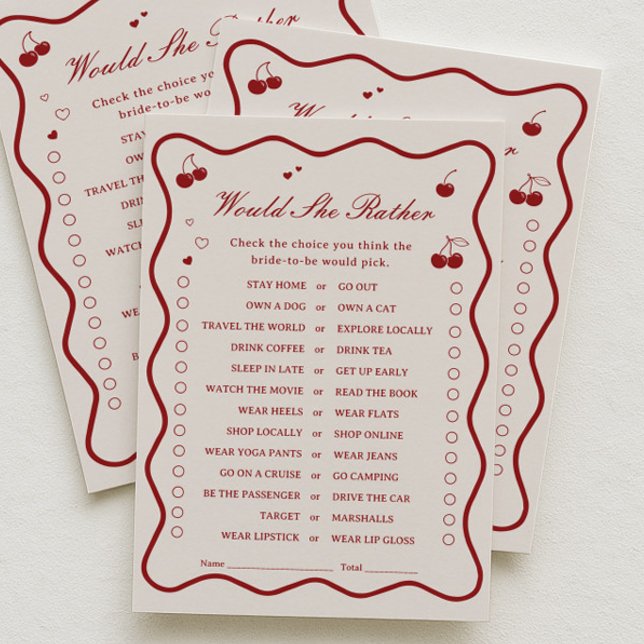 Would She Rather
Check the choice you
bride-to-be wo
STAY
OW
TRAVEL THE
DRIN
SLE
WATCH
WE
B
Would She Rather
Check the choice you think the
bride-to-be would pick.
STAY HOME or GO OUT
OWN A DOG or OWN A CAT
TRAVEL THE WORLD or EXPLORE LOCALLY
DRINK COFFEE or DRINK TEA
SLEEP IN LATE or GET UP EARLY
WATCH THE MOVIE or READ THE BOOK
WEAR HEELS or WEAR FLATS
SHOP LOCALLY or SHOP ONLINE
WEAR YOGA PANTS or WEAR JEANS
GO ON A CRUISE or GO CAMPING
BE THE PASSENGER or DRIVE THE CAR
TARGET or MARSHALLS
WEAR LIPSTICK or WEAR LIP GLOSS
Name Total